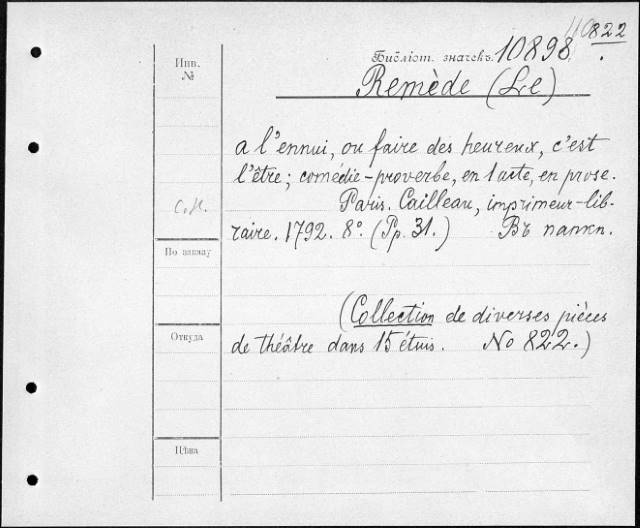 822
Библіот. значекъ. 10898
Инв.
№
Remède (Le)
a l'ennui, ou faire des heureux, c'est
l'être; comédie-proverbe, en 1 acte, en prose.
Paris. Cailleau, imprimeur-lib-
raire. 1792. 8°. (Pp. 31.) Въ папкѣ.
По заказу
(Collection de diverses pièces
Откуда
de théâtre dans 15 étuis. No 822.)
Цѣна